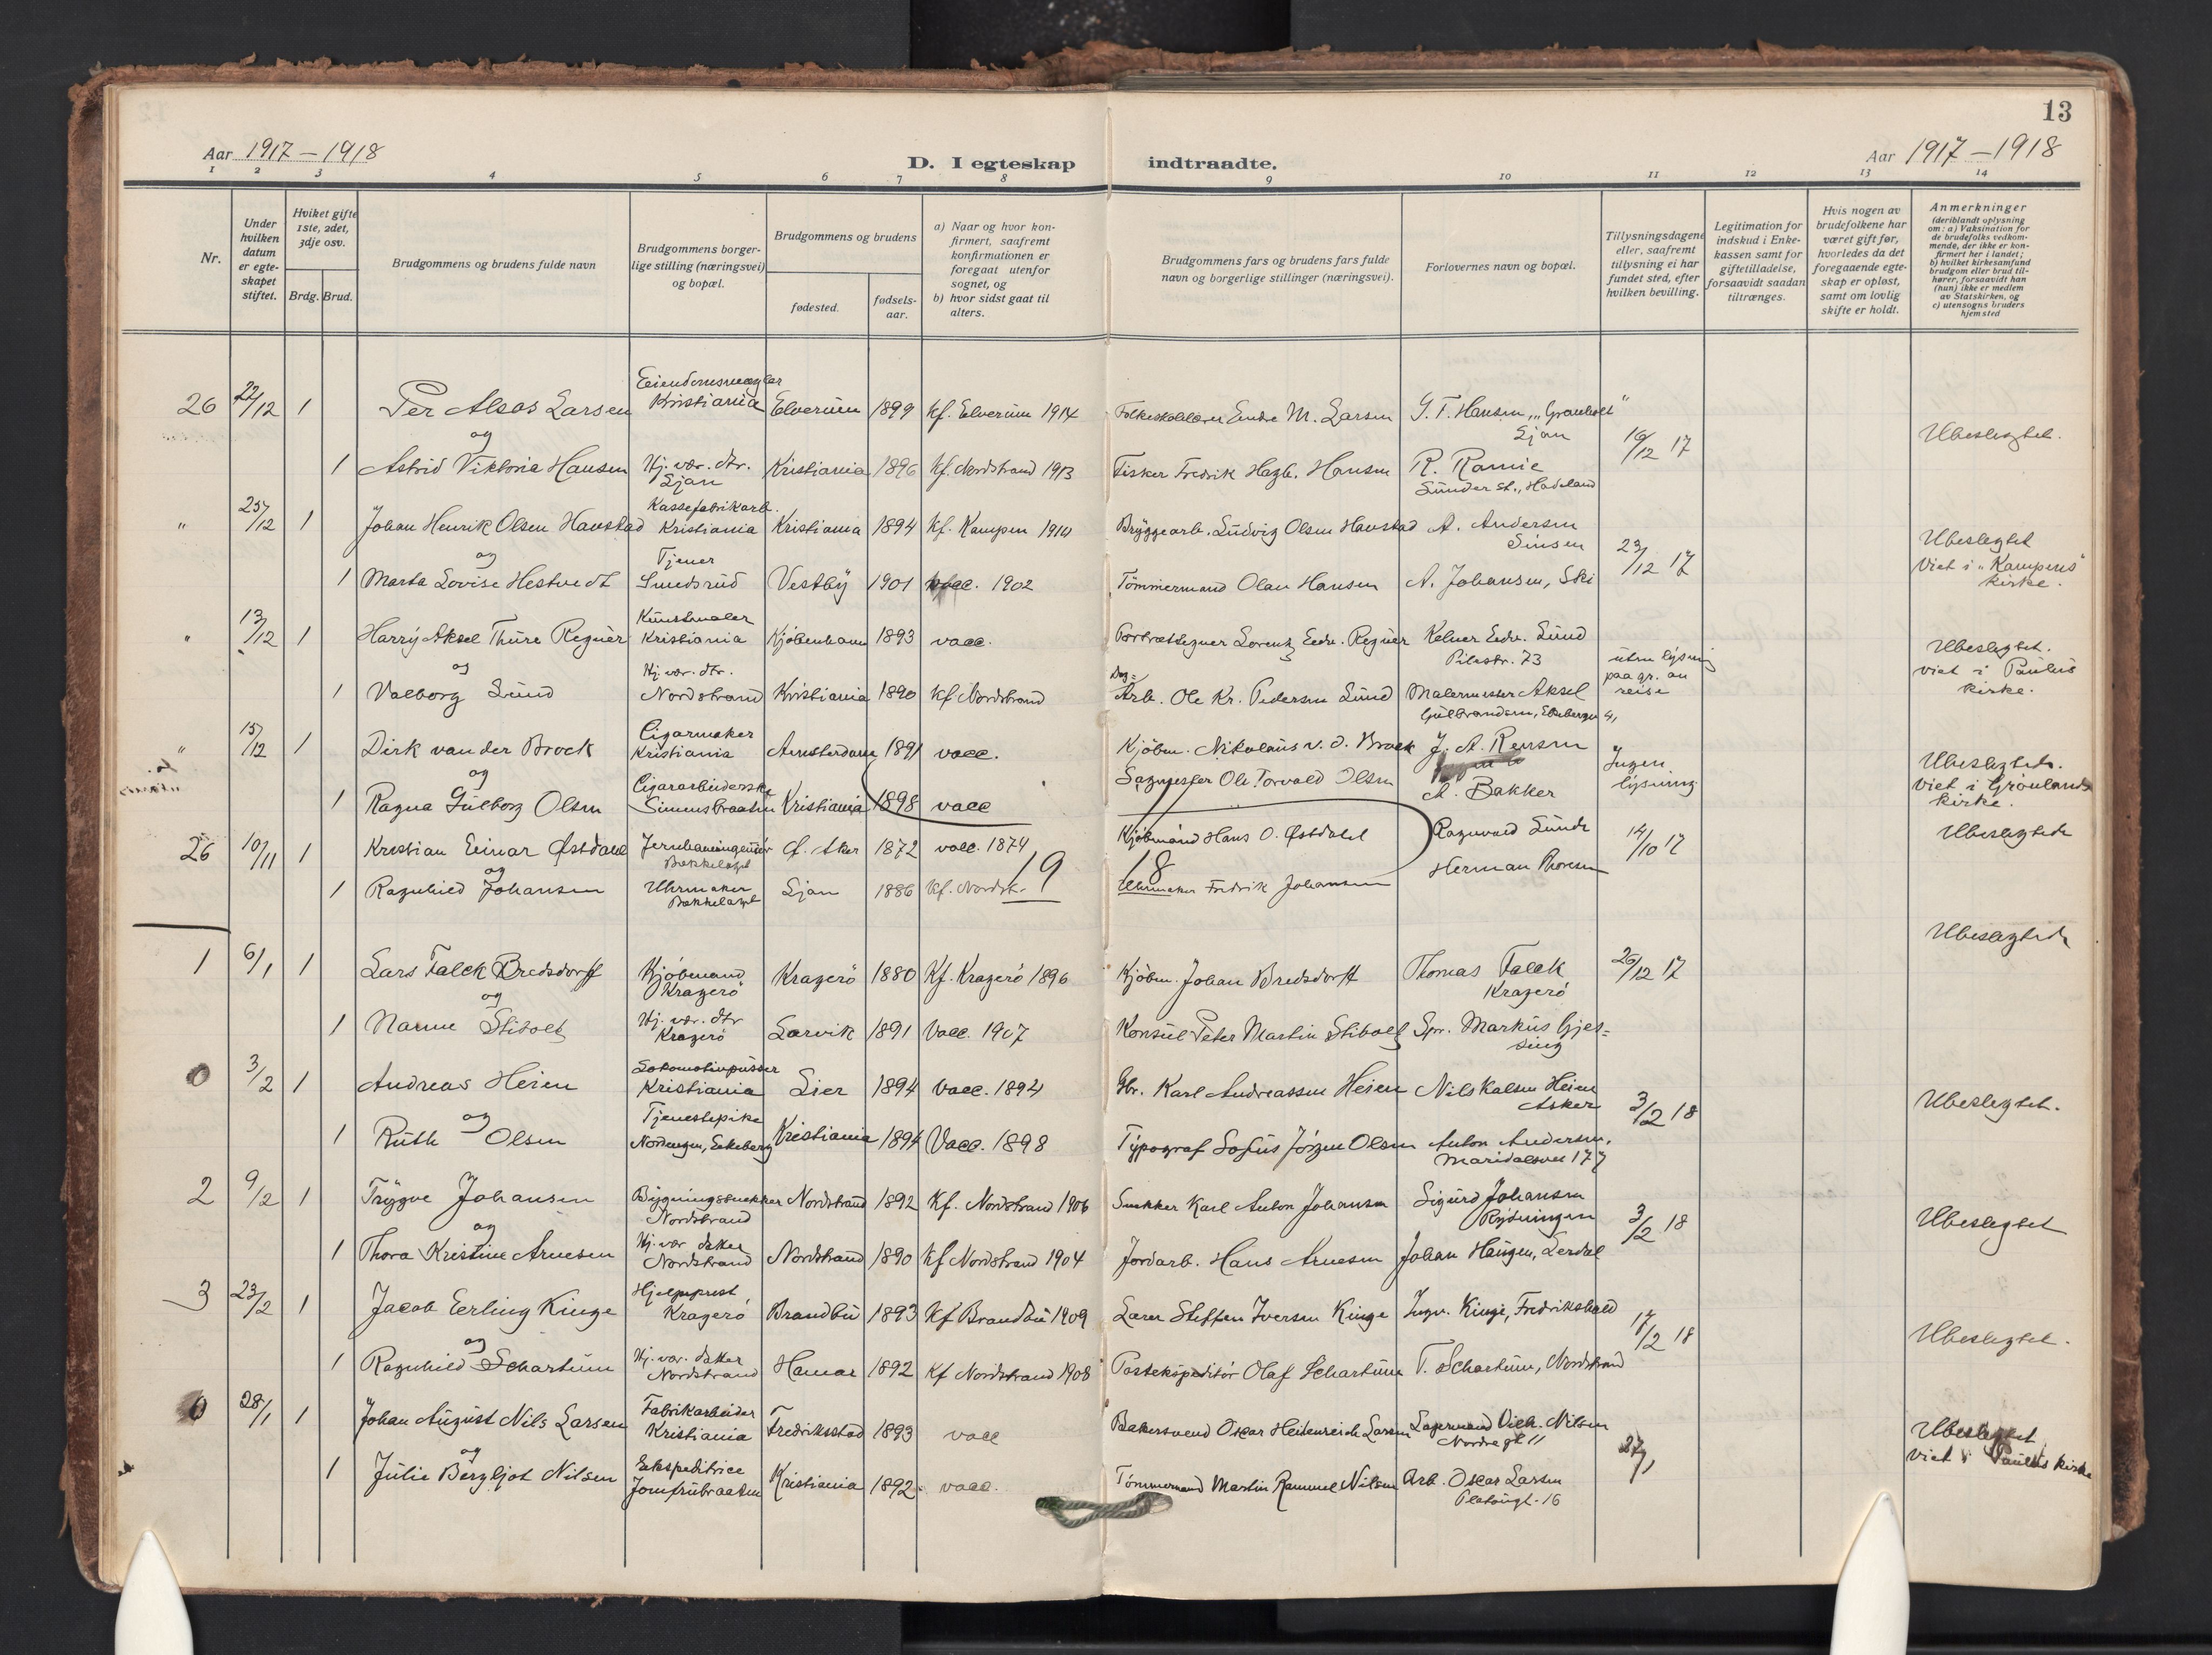 13
Aar 1917 – 1918
D. I egteskap indtraadte.
Aar 1917 – 1918
1 2 3 4 5 6 7 8 9 10 11 12 13 14
Nr.
Under hvilken datum er egteskapet stiftet.
Hviket gifte 1ste, 2det, 3dje osv.
Brdg. Brud.
Brudgommens og brudens fulde navn
Brudgommens borgerlige stilling (næringsvei) og bopæl.
Brudgommens og brudens
fødested. fødselsaar.
a) Naar og hvor konfirmert, saafremt konfirmationen er foregaat utenfor sognet, og
b) hvor sidst gaat til alters.
Brudgommens fars og brudens fars fulde navn og borgerlige stillinger (næringsvei).
Forlovernes navn og bopæl.
Tillysningsdagene eller, saafremt tillysning ei har fundet sted, efter hvilken bevilling.
Legitimation for indskud i Enkekassen samt for giftetilladelse, forsaavidt saadan tiltrænges.
Hvis nogen av brudefolkene har været gift før, hvorledes da det foregaaende egteskap er opløst, samt om lovlig skifte er holdt.
Anmerkninger
(deriblandt oplysning om: a) Vaksination for de brudefolks vedkommende, der ikke er konfirmert her i landet;
b) hvilket kirkesamfund brudgom eller brud tilhører, forsaavidt han (hun) ikke er medlem av Statskirken, og
c) utensogns bruders hjemsted
26 22/12 1 Per Alsos Larsen Eiendomsmægler Kristiania Elverum 1899 kf. Elverum 1914 Folkeskolelærer Endre M. Larsen G. T. Hansen, "Granholt" Ljan 16/12 17 Ubeslegtet.
og
1 Astrid Viktoria Hansen Hj. vær. dtr. Ljan Kristiania 1896 kf. Nordstrand 1913 Fisker Fredrik Hagb. Hansen R. Ramie Lunder st., Hadeland
" 25/12 1 Johan Henrik Olsen Havstad Kassefabrikarb. Kristiania Kristiania 1894 kf. Kampen 1910 Bryggearb. Ludvig Olsen Havstad A. Andersen Sinsen 23/12 17 Ubeslegtet
og
1 Marta Lovise Hestvedt Tjener Smedsrud Vestby 1901 vacc. 1902 Tømmermand Olau Hansen A. Johansen, Ski Viet i "Kampens" kirke.
" 13/12 1 Harry Aksel Thure Regnèr Kunstmaler Kristiania Kjøbenhavn 1893 vacc. Portrættegner Lorentz Edv. Regnèr Kelner Edv. Lund Pilestr. 73 uten lysning paa gr. av reise Ubeslegtet.
og
1 Valborg Lund Hj. vær. dtr. Nordstrand Kristiania 1890 kf Nordstrand Dag= Arb. Ole Kr. Pedersen Lund Malermester Aksel Gulbrandsen, viet i Paulus kirke.
" 15/12 1 Dirk van der Broek Cigarmaker Kristiania Amsterdam 1891 vacc. Kjøbm. Nikolaus v. d. Broek J. A. Rensen Ingen lysning Ubeslegtet.
og
1 Ragna Gulborg Olsen Cigararbeiderske Simensbraaten Kristiania 1898 vacc Sagmester Ole Torvald Olsen A. Bakker Viet i Grønlands kirke.
26 10/11 1 Kristian Einar Østdahl Jernbaneingeniør Bekkelaget Ø. Aker 1872 vacc. 1874 Kjøbmand Hans O. Østdahl Ragnvald Lunde 14/10 17 Ubeslegtede
og
1 Ragnhild Johansen Uhrmaker Bekkelaget Ljan 1886 kf. Nordstr. Uhrmaker Fredrik Johansen Herman Thoresen
19 18
1 6/1 1 Lars Falck Bredsdorff Kjøbmand Kragerø Kragerø 1880 Kf. Kragerø 1896 Kjøbm. Johan Bredsdorff Thomas Falck Kragerø 26/12 17 Ubeslegtede
og
1 Nanne Stibolt Hj. vær. dtr Kragerø Larvik 1891 Vacc. 1907 Konsul Peter Martin Stibolt Spr. Markus Gjessing
0 3/2 1 Andreas Heien Lokomotivpusser Kristiania Lier 1894 Vacc. 1894 Gbr. Karl Andreassen Heien Nils Kalsen Heien Asker 3/2 18 Ubeslegtet.
og
1 Ruth Olsen Tjenestepike Norengen, Ekeberg Kristiania 1894 Vacc. 1898 Typograf Sofus Jørgen Olsen Anton Andersen, Maridalsvei 177
2 9/2 1 Trygve Johansen Bygningssnekker Nordstrand Nordstrand 1892 Kf. Nordstrand 1906 Snekker Karl Anton Johansen Sigurd Johansen Rydningen 3/2 18 Ubeslegtet
og
1 Thora Kristine Arnesen Hj. vær datter Nordstrand Nordstrand 1890 Kf Nordstrand 1904 Jordarb. Hans Arnesen Johan Haugen, Lerdal
3 23/2 1 Jacob Erling Kinge Hjelpeprest, Kragerø Brandbu 1893 Kf Brandbu 1909 Lærer Steffen Iversen Kinge Ingv. Kinge, Fredrikshald 17/2 18 Ubeslegtet.
og
1 Ragnhild Schartum Hj. vær. datter Nordstrand Hamar 1892 Kf Nordstrand 1908 Postekspeditør Olaf Schartum T. Schartum, Nordstrand
0 28/1 1 Johan August Nils Larsen Fabrikarbeider Kristiania Fredriksstad 1893 vacc Bakersvend Oscar Heidenreich Larsen Lagermand Vilh. Nilsen Nordregt 11 27/1 Ubeslegtet
og
1 Julie Bergljot Nilsen Ekspeditrice Jomfrubraaten Kristiania 1892 vacc. Tømmermand Martin Rammel Nilsen Arb. Oscar Larsen Platougt. 16 viet i Paulus kirke